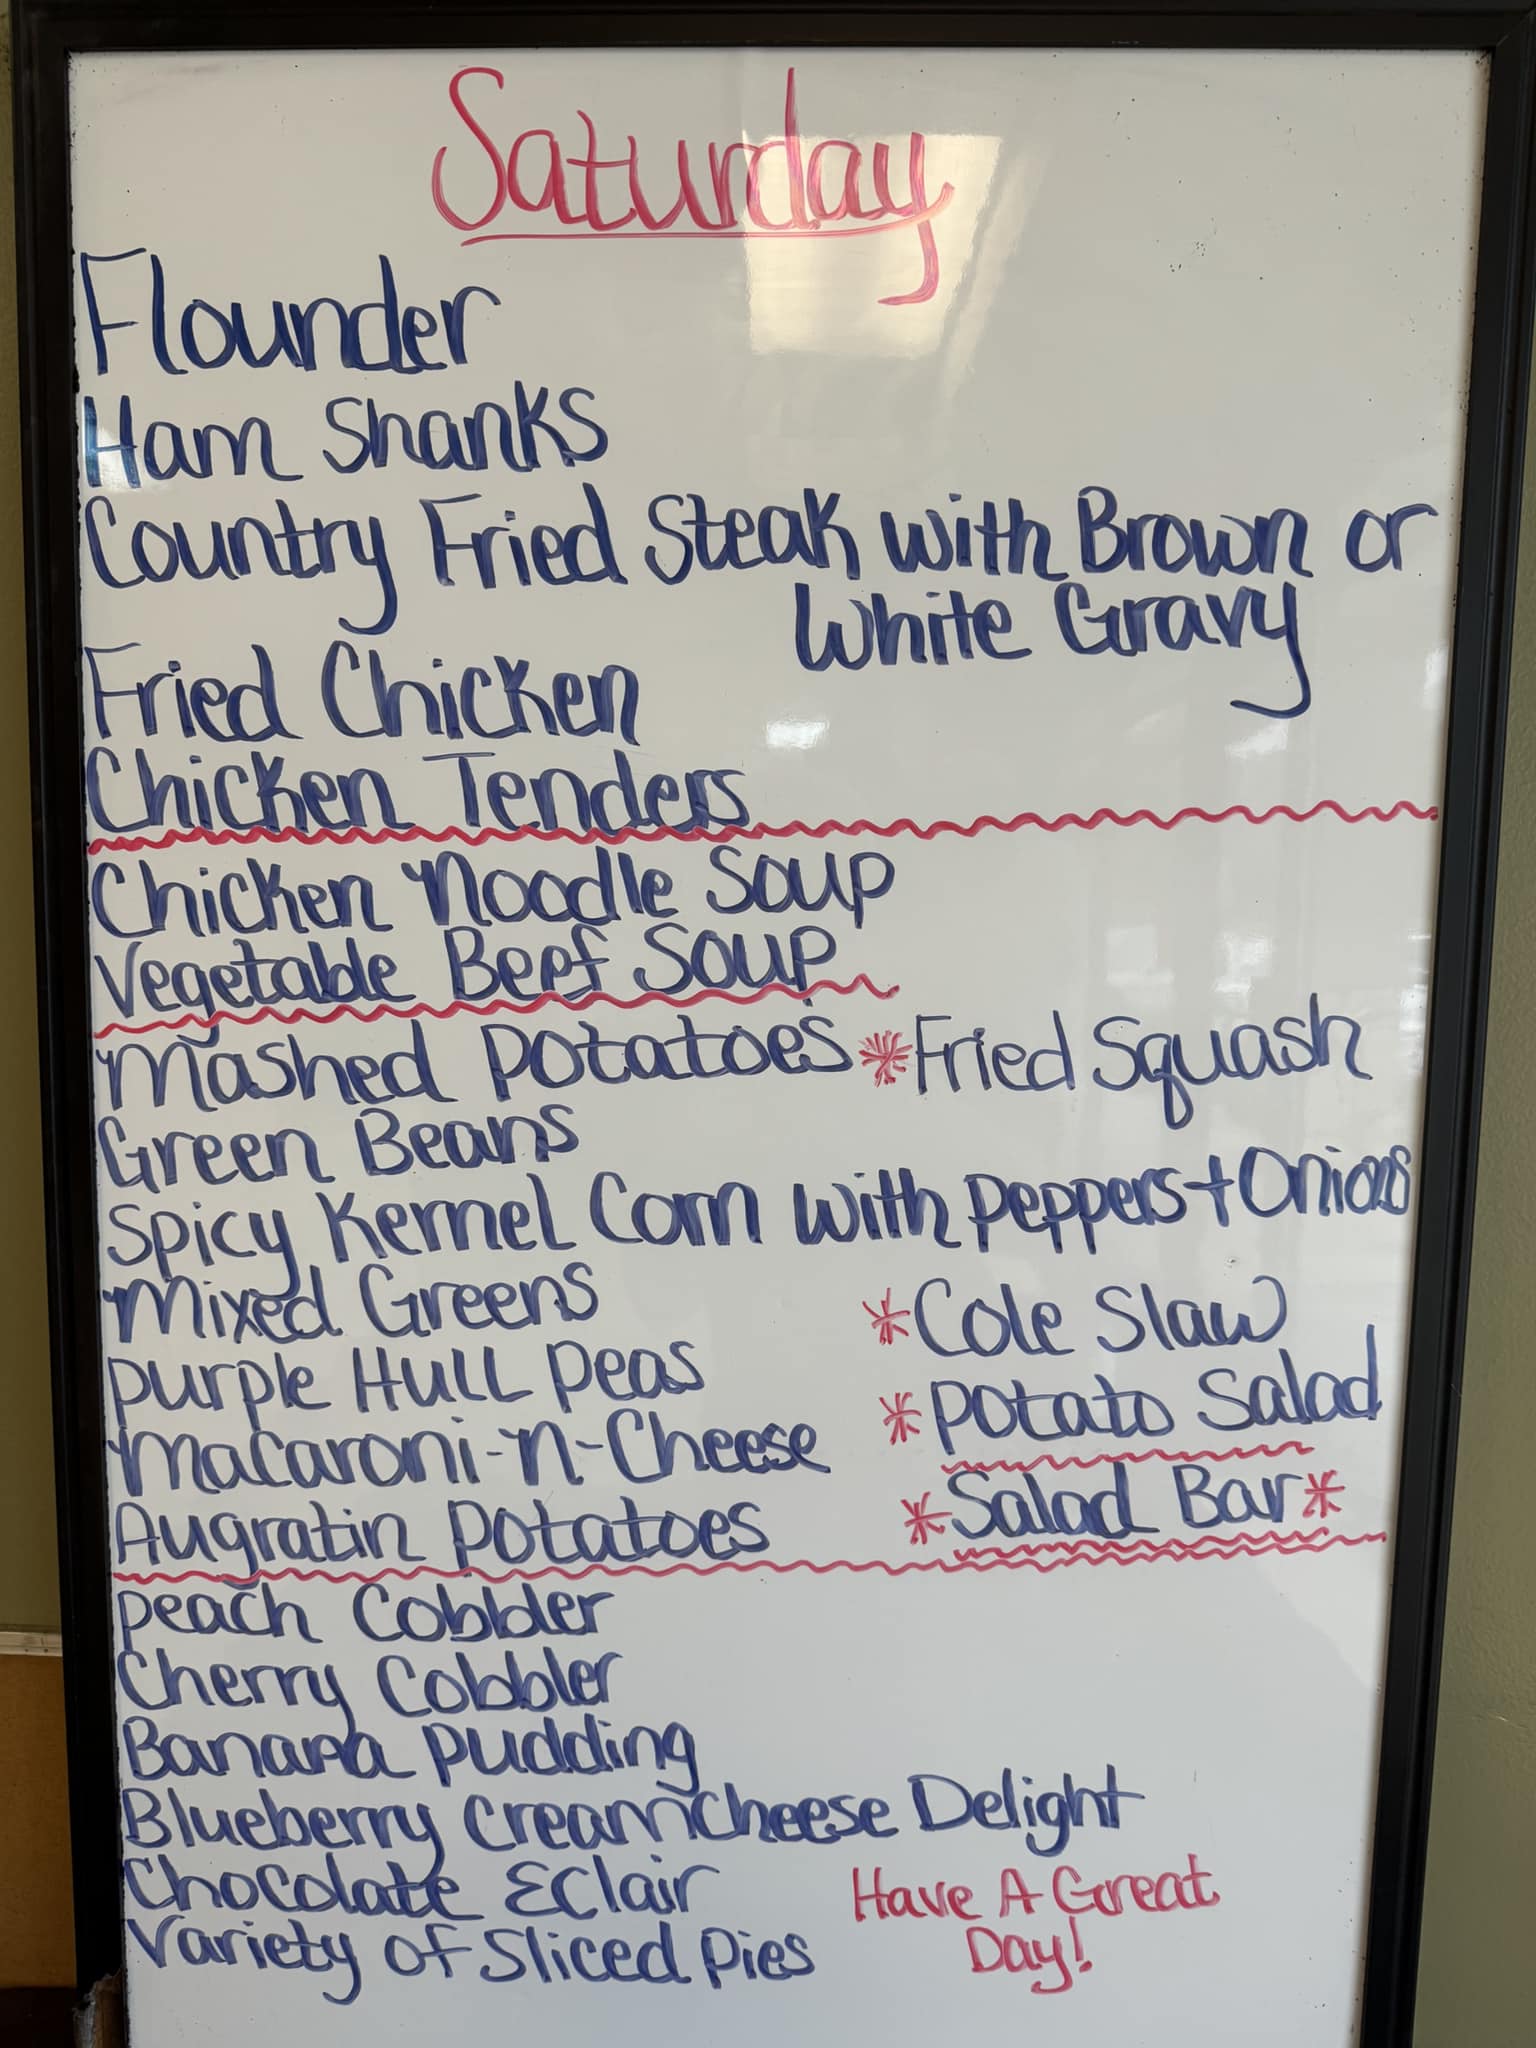 Saturday
Flounder
Ham Shanks
Country Fried Steak with Brown or
White Gravy
Fried Chicken
Chicken Tenders
Chicken Noodle Soup
Vegetable Beef Soup
Mashed Potatoes *Fried Squash
Green Beans
Spicy Kernel Corn with Peppers + Onions
Mixed Greens *Cole Slaw
Purple Hull Peas
*Potato Salad
Macaroni-n-Cheese
*Salad Bar*
Augratin Potatoes
Peach Cobbler
Cherry Cobbler
Banana Pudding
Blueberry CreamCheese Delight
Chocolate Eclair
Variety of Sliced Pies
Have A Great
Day!